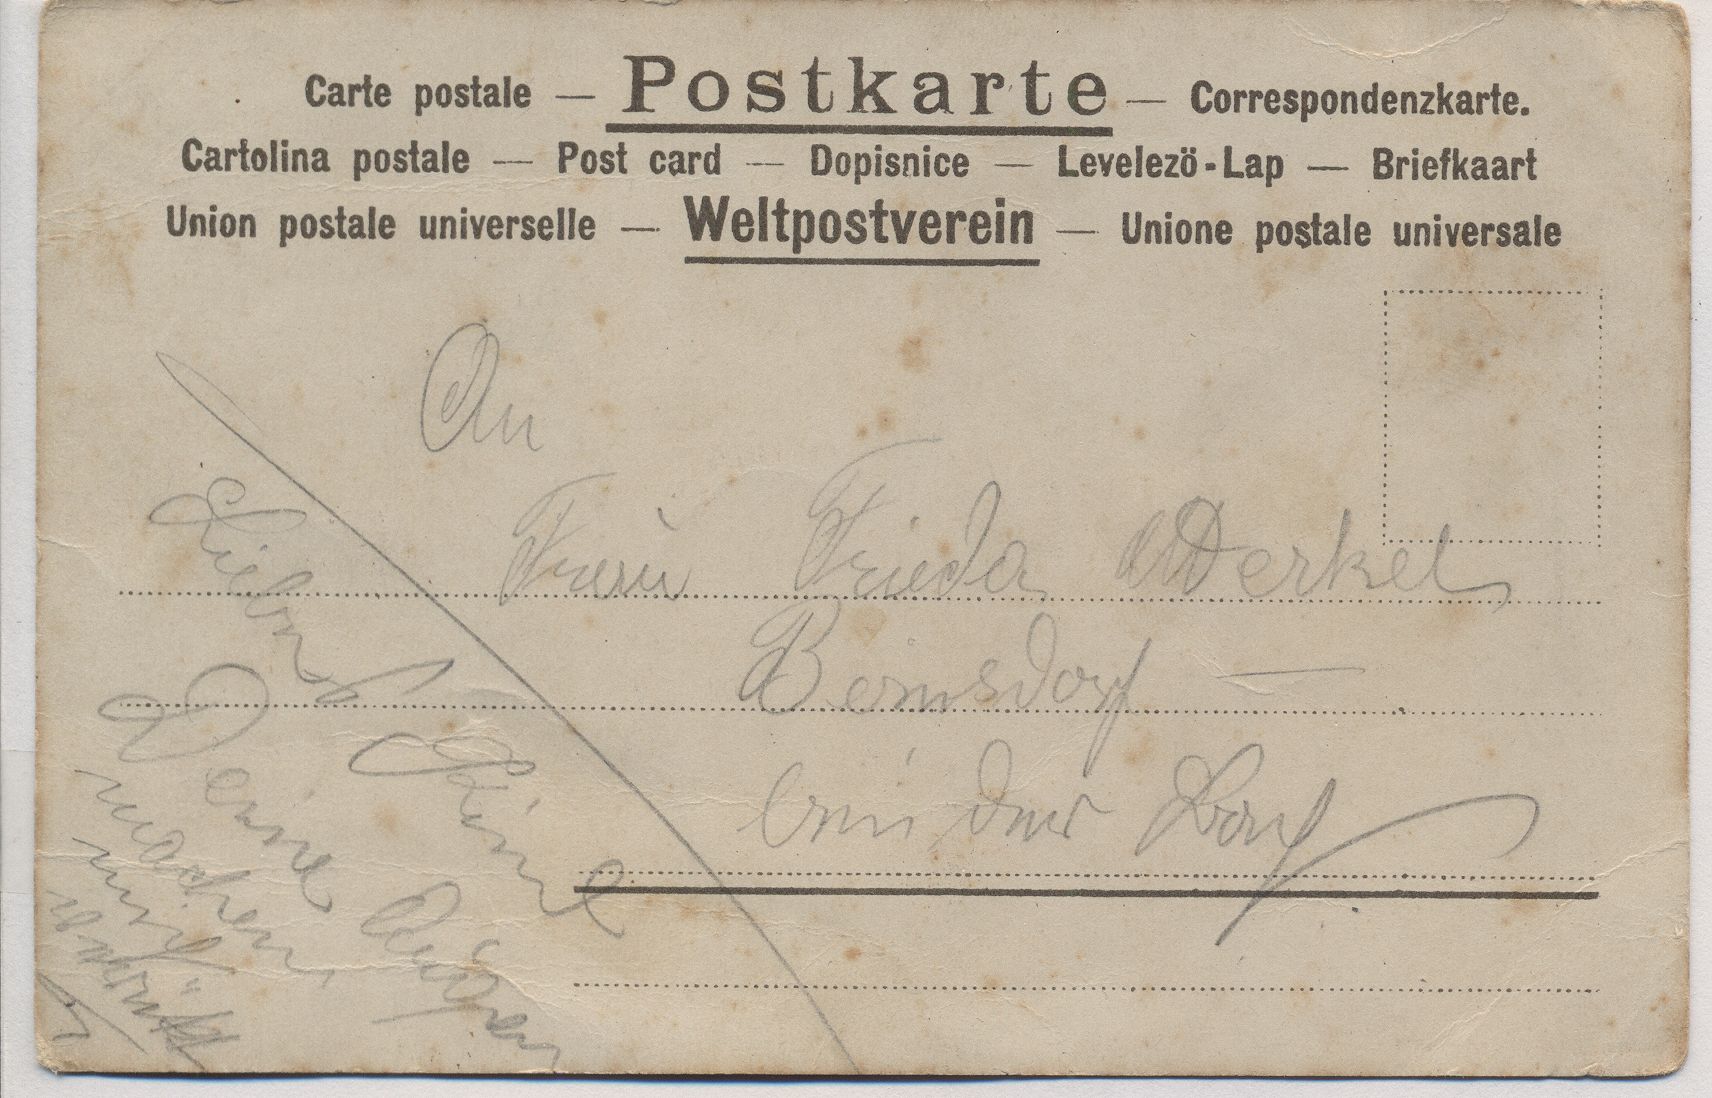 Carte postale — Postkarte — Correspondenzkarte.
Cartolina postale — Post card — Dopisnice — Levelezö-Lap — Briefkaart
Union postale universelle — Weltpostverein — Unione postale universale
An
Frau Frieda Merkel
Bernsdorf —
bei der Post
Deine Augen
machen
mich